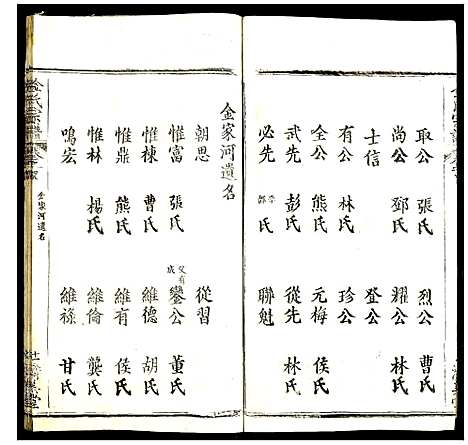 取公 張氏 烈公 曹氏
尚公 鄧氏 耀公 林氏
士信 登公
有公 林氏 珍公
全公 熊氏 元梅 侯氏
武先 彭氏 從先 林氏
必先 聯魁
金家河遺名
朝思 從習
惟富 張氏 鑾公 董氏
惟棟 曹氏 維德 胡氏
惟鼎 熊氏 維有 侯氏
惟林 楊氏 維倫 龔氏
鳴宏 維祿 甘氏
金家河遺名